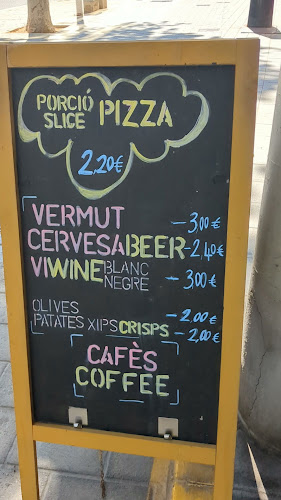 PORCIÓ PIZZA
SLICE
2,20€
VERMUT - 3,00€
CERVESA BEER - 2,40€
VI WINE BLANC
NEGRE - 3,00€
OLIVES - 2,00€
PATATES XIPS CRISPS - 2,00€
CAFÈS
COFFEE